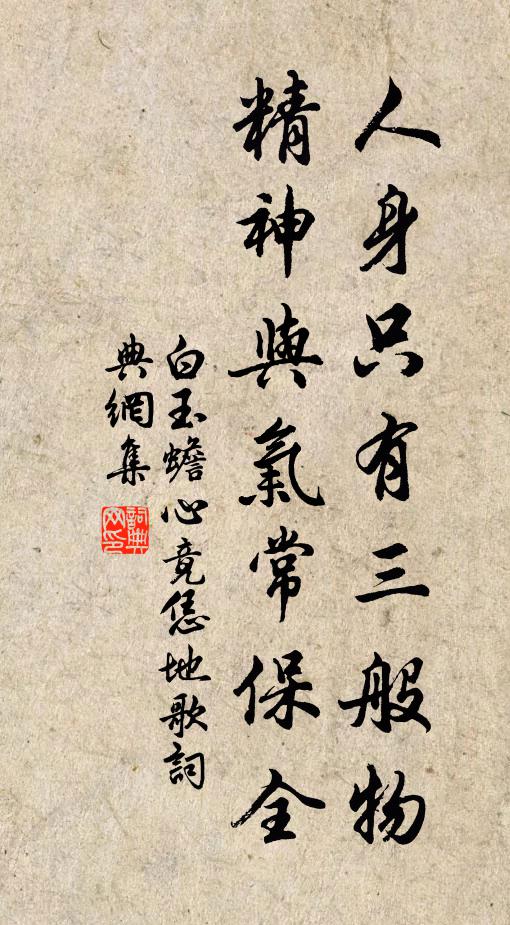 人身只有三般物
精神與氣常保全
白玉蟾心竟恁地歌詞
典網集
詞典網印